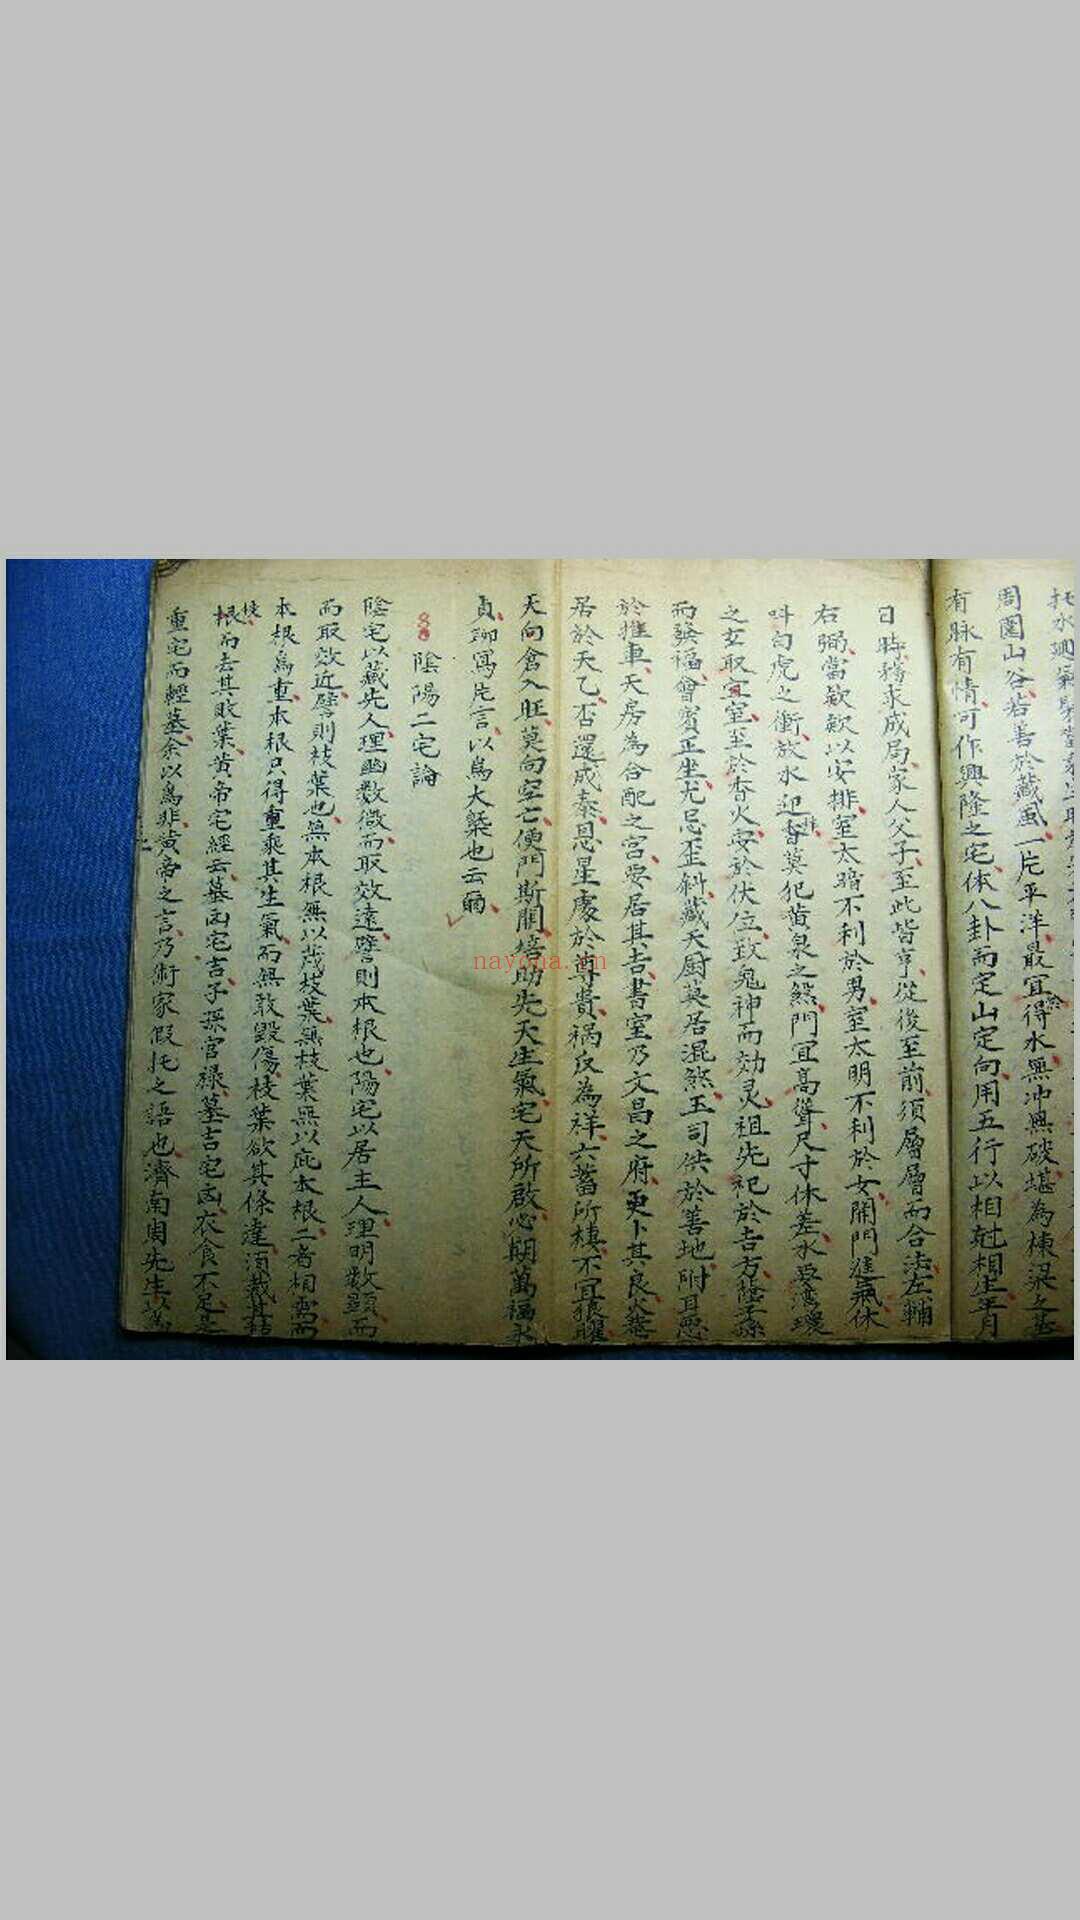 周圍山谷若善於藏風一片平洋最宜得水無冲無破堪為棟梁之基
有脉有情可作興隆之宅体八卦而定山定向用五行以相尅相生年月
日時務求成局家人父子至此皆亨從後至前須層層而合法左輔
右弼當欵欵以安排室太暗不利於男室太明不利於女開門進氣休
呌白虎之衝放水迎
莫犯黄泉之煞門宜高聳尺寸休差水要灣環
之玄取宜室至於香火安於伏位致鬼神而効灵祖先祀於吉方
而發福曾賓正坐尤忌歪斜藏天厨莫居混煞玉司供於善地附耳
於推車天房為合配之宫要居其吉書室乃文昌之府更卜其良火
居於天乙否還成泰恩星處於尊貴祸反為祥六蓄所棲不宜狼
天向倉入旺莫向空亡便門斯開培助先天生氣宅天所啟心期萬福永
貞聊寫片言以為大槩也云爾
陰陽二宅論
陰宅以藏先人理幽数微而取效遠譬則本根也陽宅以居主人理明数顯而
而取效近譬則枝葉也無本根無以茂枝葉無枝葉無以庇本根二者相需而
本根為重本根只得重乘其生氣而無敢毀傷枝葉欲其條達須裁其
枝
根而去其敗葉黄帝宅經云墓凶宅吉子孫官禄墓吉宅凶衣食不足是
重宅而輕墓余以為非黄帝之言乃術家假托之語也濟南周先生以為
nayona.cn